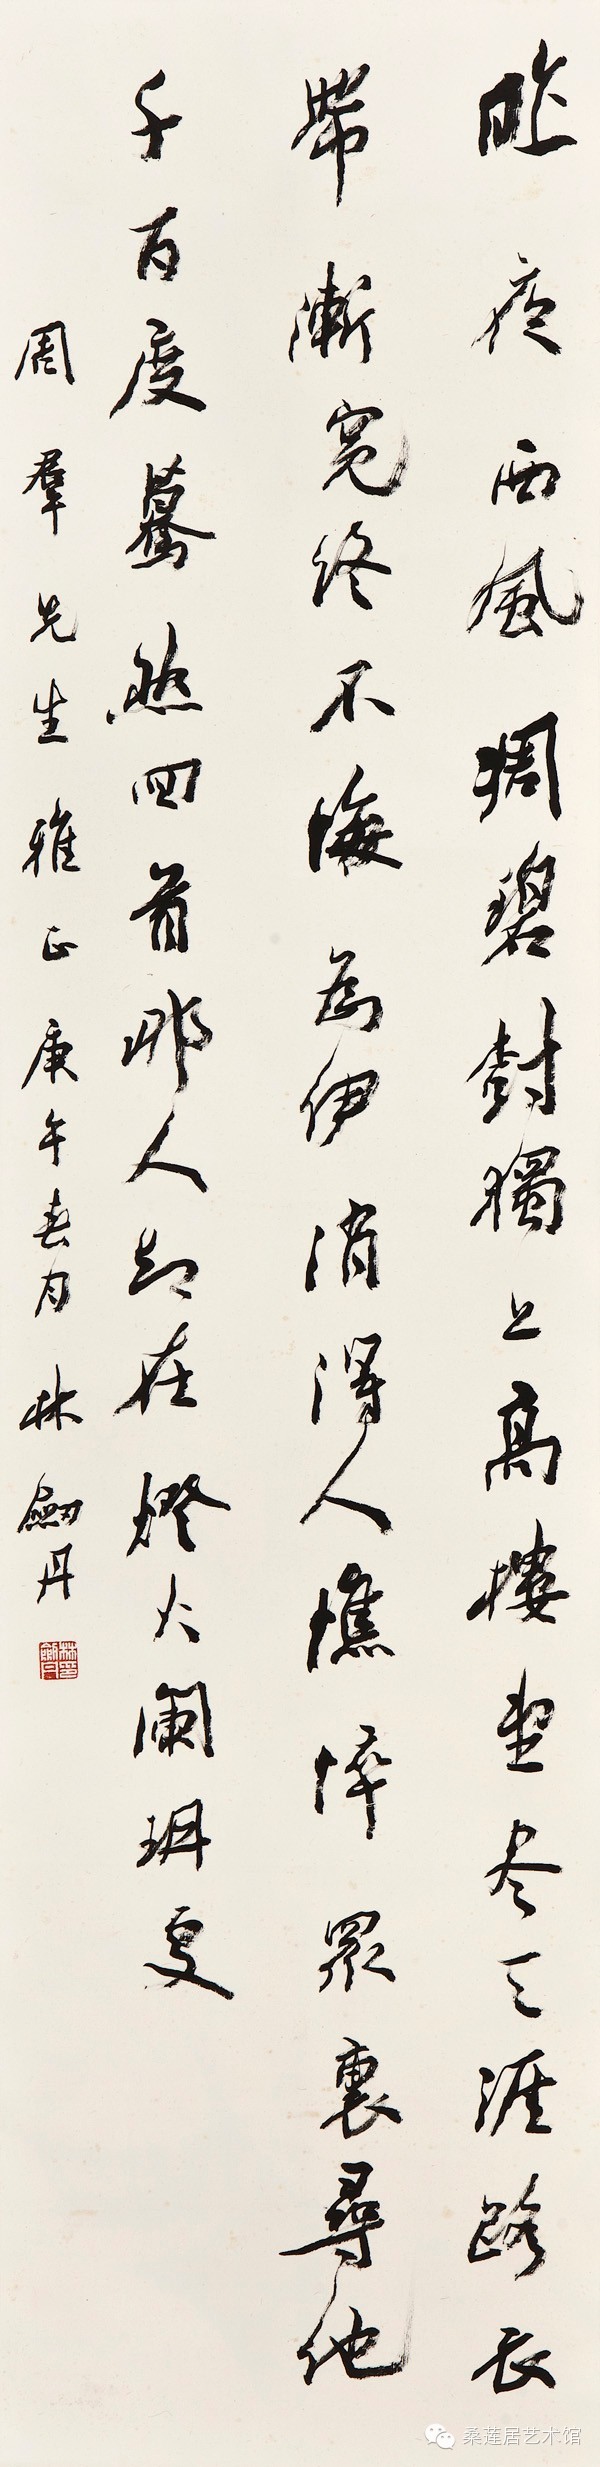 昨夜西風凋碧樹獨上高樓望尽天涯路衣
帶漸寬終不悔為伊消得人憔悴眾裏尋他
千百度驀然回首那人却在燈火闌珊處
周羣先生雅正庚午春月林劒丹
桑莲居艺术馆